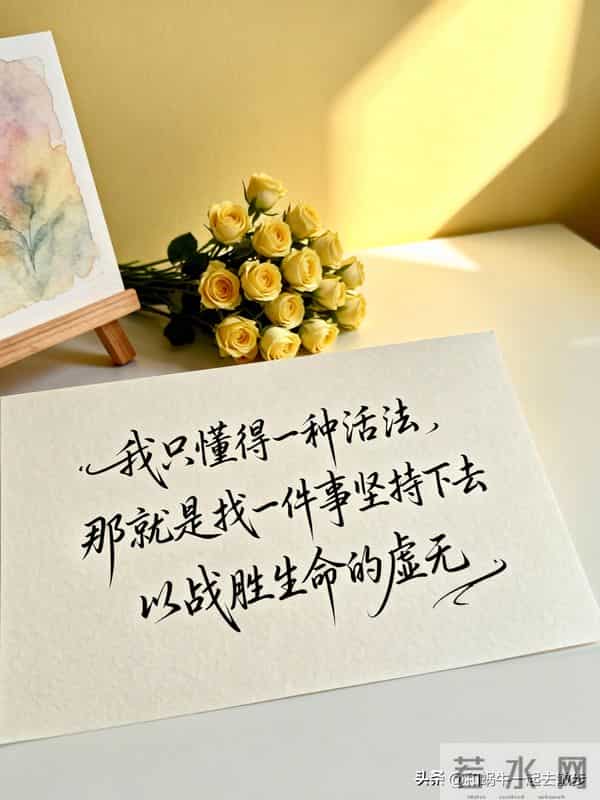 我只懂得一种活法，
那就是找一件事坚持下去
以战胜生命的虚无
若水网
头条 @和蜗牛一起去散步